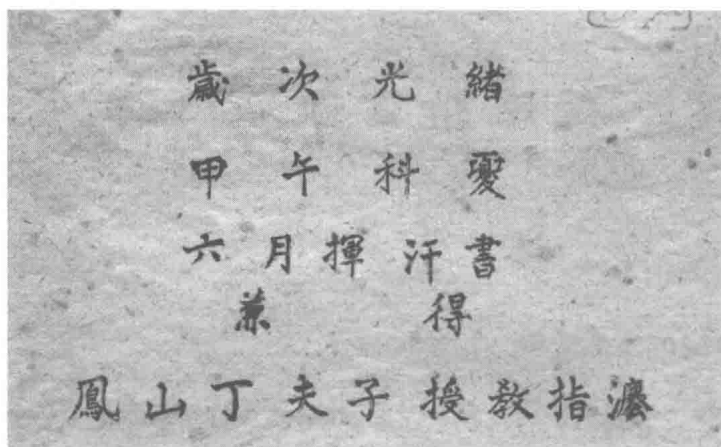 歲次光緒
甲午科夓
六月揮汗書
兼得
鳳山丁夫子授教指灋